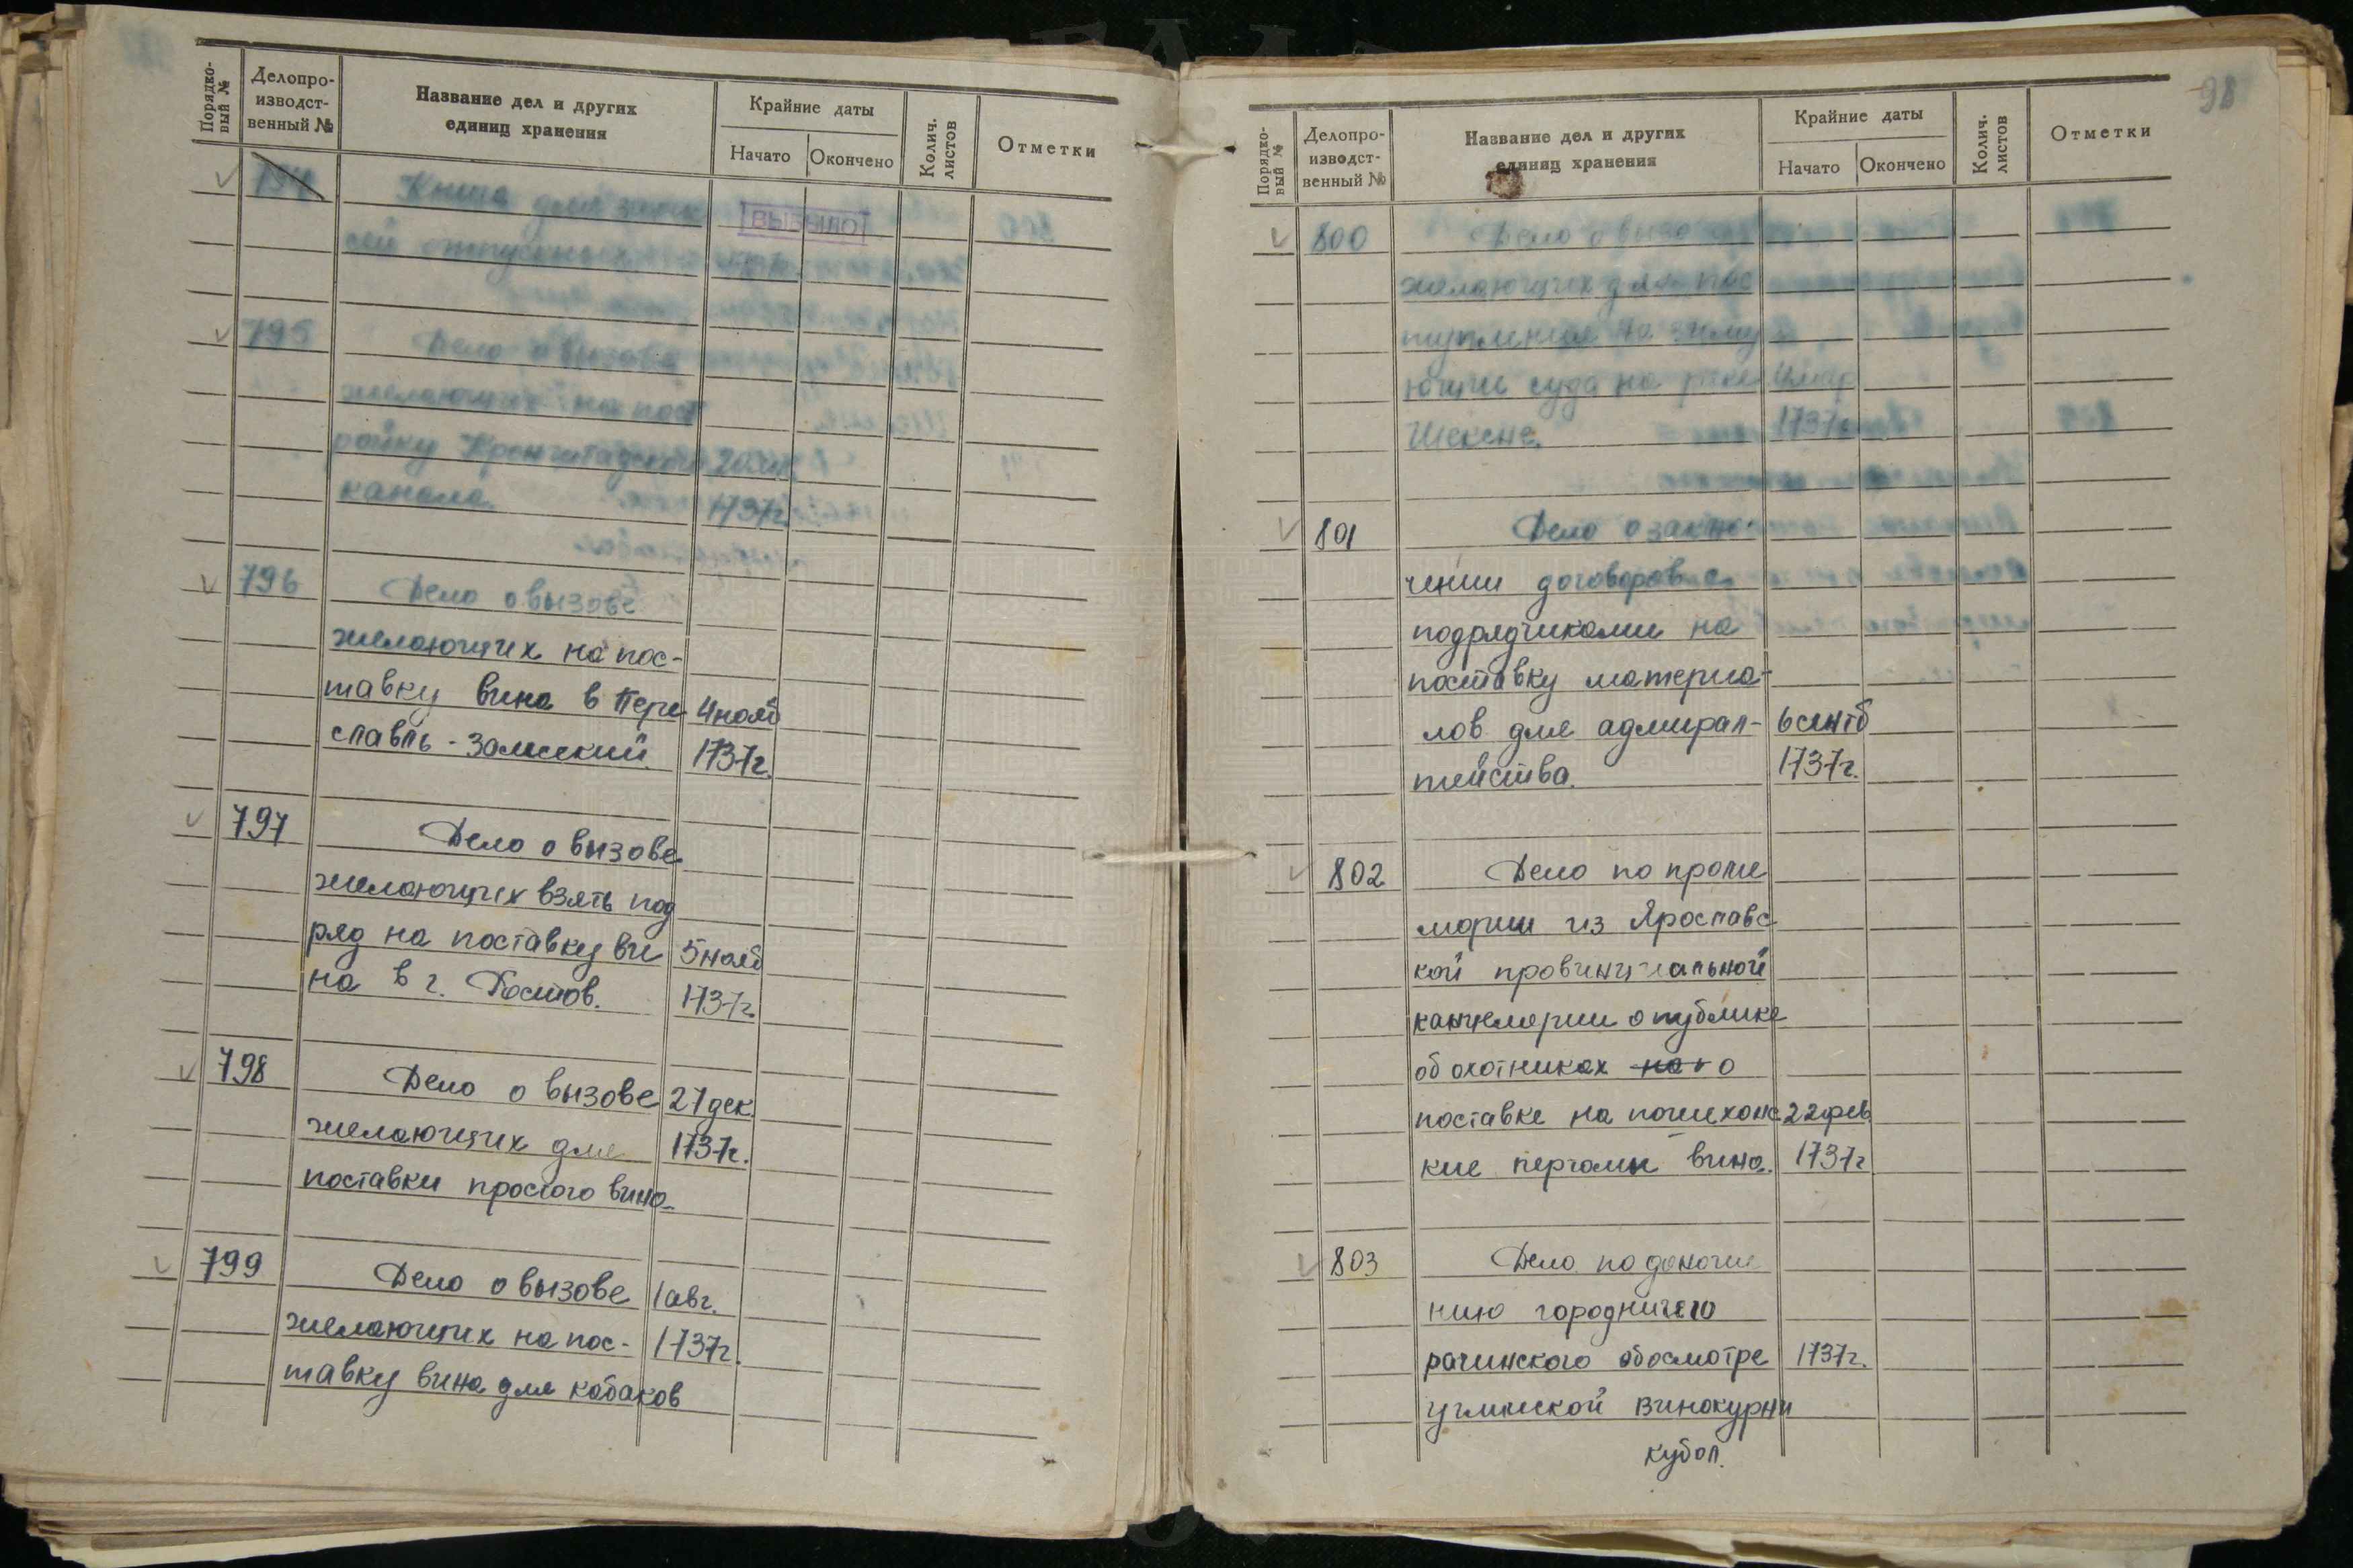 Порядко-
вый №
Делопро-
изводст-
венный №
Название дел и других
единиц хранения
Крайние даты
Начато
Окончено
Колич.
листов
Отметки
794
Книга для записи
ВЫБЫЛО
сей отпускных
795
Дело о вызове
желающих на пост
ройку Кронштадского
канала.
1737г.
796
Дело о вызове
желающих на пос-
тавку вина в Пере
4 нояб
славль-Залесский.
1737г.
797
Дело о вызове
желающих взять под
ряд на поставку ви
5 нояб
на в г. Ростов.
1737г.
798
Дело о вызове
27 дек
желающих для
1737г.
поставки простого вина.
799
Дело о вызове
1 авг.
желающих на пос-
1737г.
тавку вина для кабаков
98
Порядко-
вый №
Делопро-
изводст-
венный №
Название дел и других
единиц хранения
Крайние даты
Начато
Окончено
Колич.
листов
Отметки
800
Дело о вызо
желающих для пос
тупления на зиму
ющие суда на реке
Шексне.
1737г
801
Дело о заклю
чении договоров с
подрядчиками на
поставку материа-
лов для адмирал-
6 сентб
тейства.
1737г.
802
Дело по проме
мории из Ярославс
кой провинциальной
канцелярии о публике
об охотниках о
поставке на пошехонс
22 фев
кие вина.
1737г
803
Дело по доноше
нию городничего
рачинского об осмотре
1737г.
угличской винокурни
кубов.